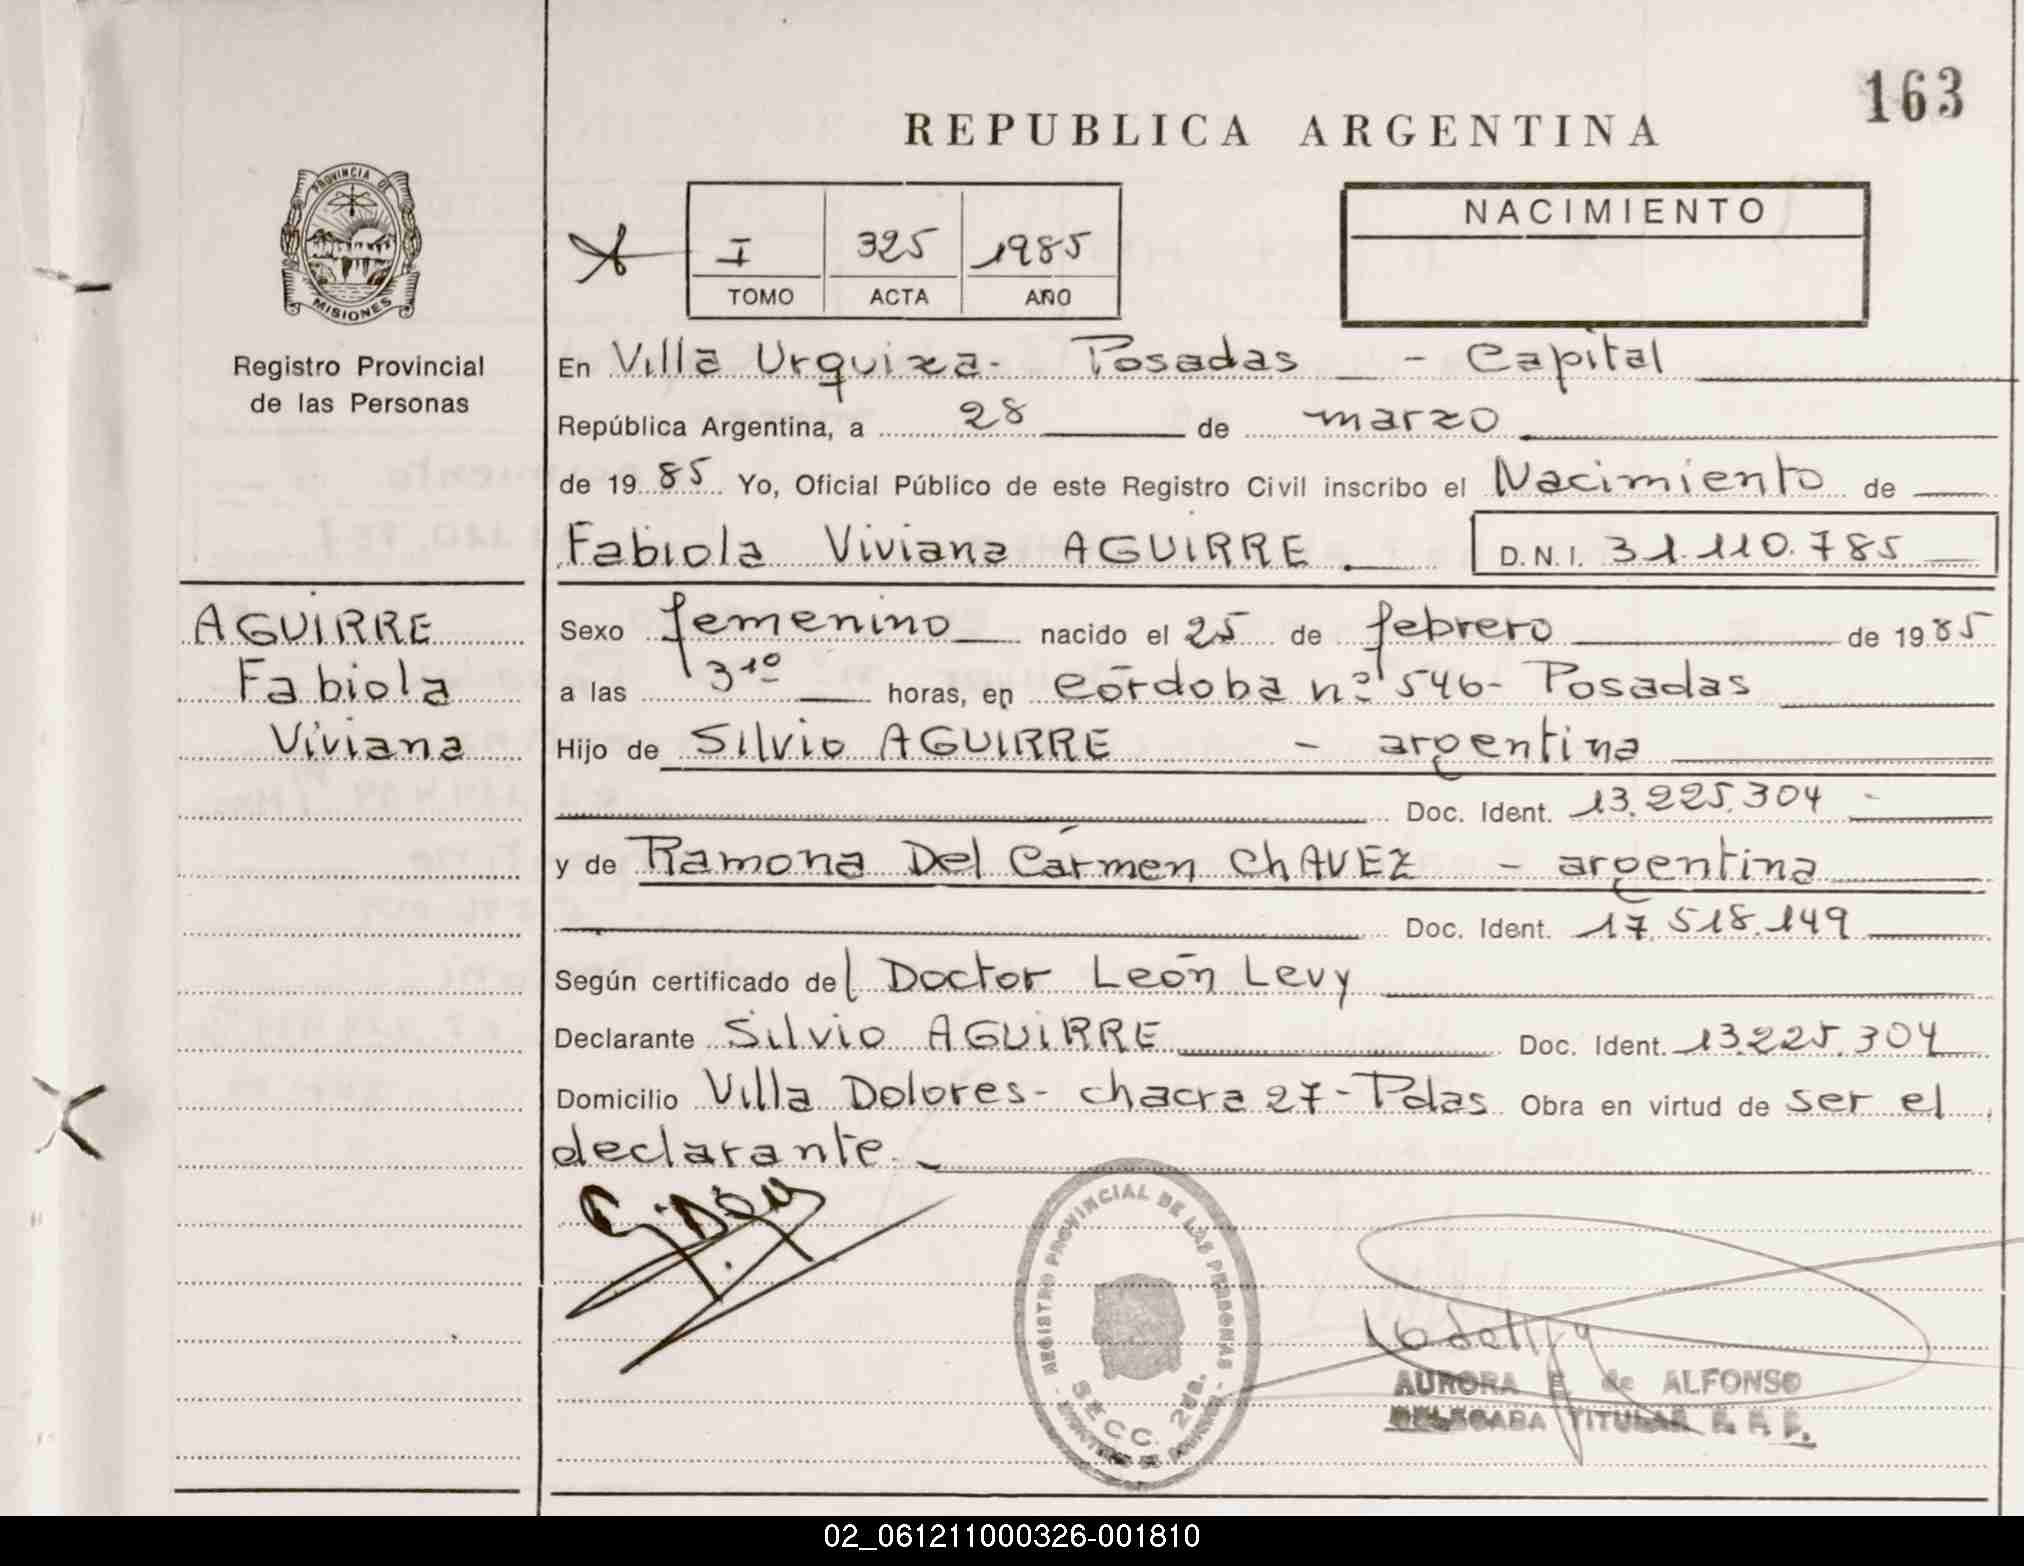 163
REPUBLICA ARGENTINA
PROVINCIA DE
MISIONES
Registro Provincial
de las Personas
I 325 1985
TOMO ACTA AÑO
NACIMIENTO
En Villa Urquiza - Posadas - Capital
República Argentina, a 28 de marzo
de 1985 Yo, Oficial Público de este Registro Civil inscribo el Nacimiento de
Fabiola Viviana AGUIRRE. D.N.I. 31.110.785
AGUIRRE
Fabiola
Viviana
Sexo femenino nacido el 25 de febrero de 1985
a las 3 10 horas, en Córdoba nº 546 - Posadas
Hijo de Silvio AGUIRRE - argentina
Doc. Ident. 13.225.304 -
y de Ramona Del Cármen ChAVEZ - argentina
Doc. Ident. 17.518.149
Según certificado del Doctor León Levy
Declarante Silvio AGUIRRE Doc. Ident. 13.225.304
Domicilio Villa Dolores - chacra 27 - Pdas Obra en virtud de ser el
declarante.
REGISTRO PROVINCIAL DE LAS PERSONAS
SECC. 2da.
AURORA E. de ALFONSO
DELEGADA TITULAR
02_061211000326-001810